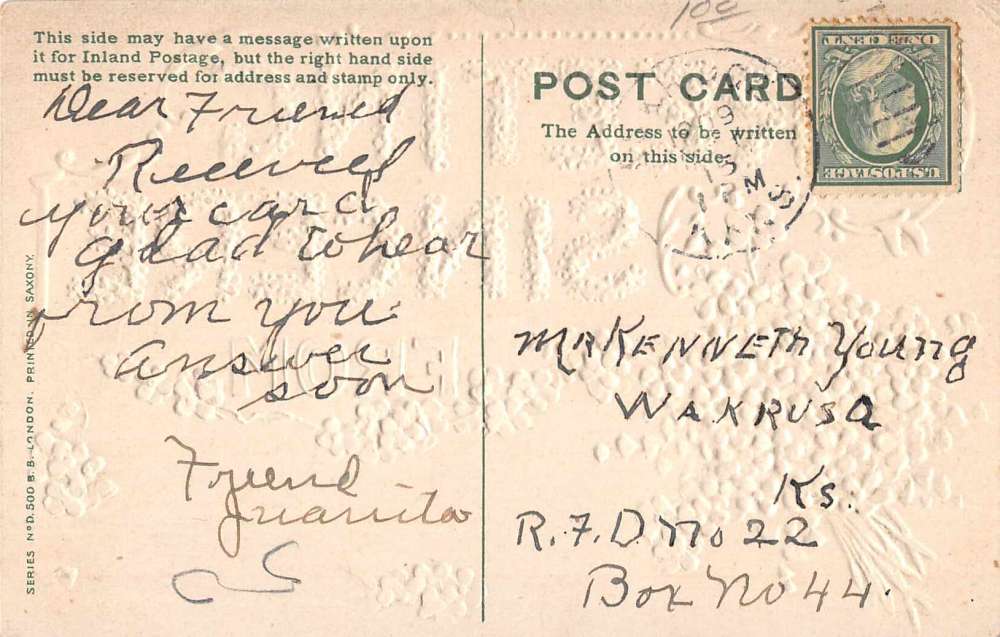 This side may have a message written upon
it for Inland Postage, but the right hand side
must be reserved for address and stamp only.
Dear Friend
Received
your card
glad to hear
from you
answer
soon
Friend
Juanita
SERIES No D.500 B.B. LONDON. PRINTED IN SAXONY.
10¢
POST CARD
The Address to be written
on this side.
1909
15
M
KAN.
U.S. POSTAGE
ONE CENT
Mr KENNETH Young
WAKRUSA
Ks.
R.F.D No 22
Box No 44.